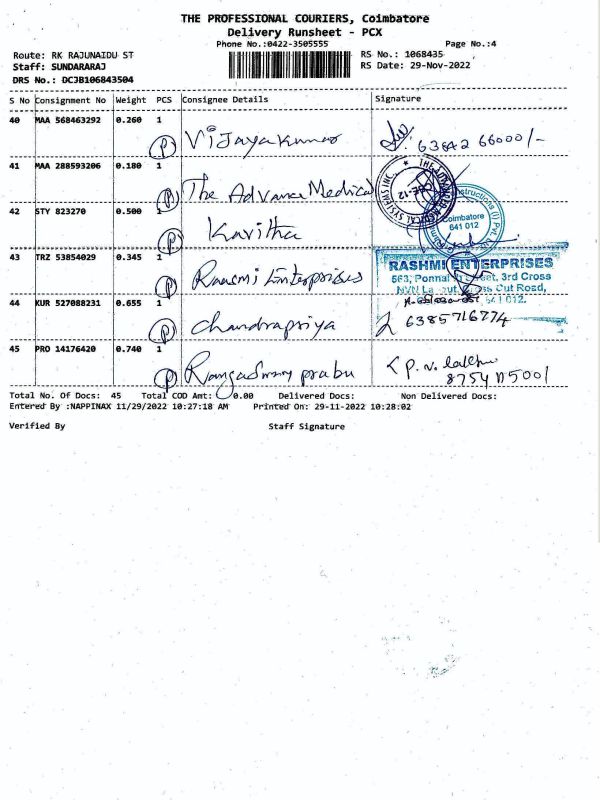 THE PROFESSIONAL COURIERS, Coimbatore
Delivery Runsheet - PCX
Phone No.:0422-3505555 Page No.:4
Route: RK RAJUNAIDU ST RS No.: 1068435
Staff: SUNDARARAJ RS Date: 29-Nov-2022
DRS No.: DCJB106843504
S No Consignment No Weight PCS Consignee Details Signature
40 MAA 568463292 0.260 1
P Vijayakumar 63842 66000/-
41 MAA 288593206 0.180 1
P The Advance Medical
42 STY 823270 0.500 1
P Kavitha Coimbatore
641 012
43 TRZ 53854029 0.345 1
P Raasmi Enterprises RASHMI ENTERPRISES
3rd Cross
Cut Road,
44 KUR 527088231 0.655 1
641 012.
P Chandrapriya 6385716774
45 PRO 14176420 0.740 1
P prabu P. V.
Total No. Of Docs: 45 Total COD Amt: 0.00 Delivered Docs: Non Delivered Docs:
Entered By :NAPPINAX 11/29/2022 10:27:18 AM Printed On: 29-11-2022 10:28:02
Verified By Staff Signature